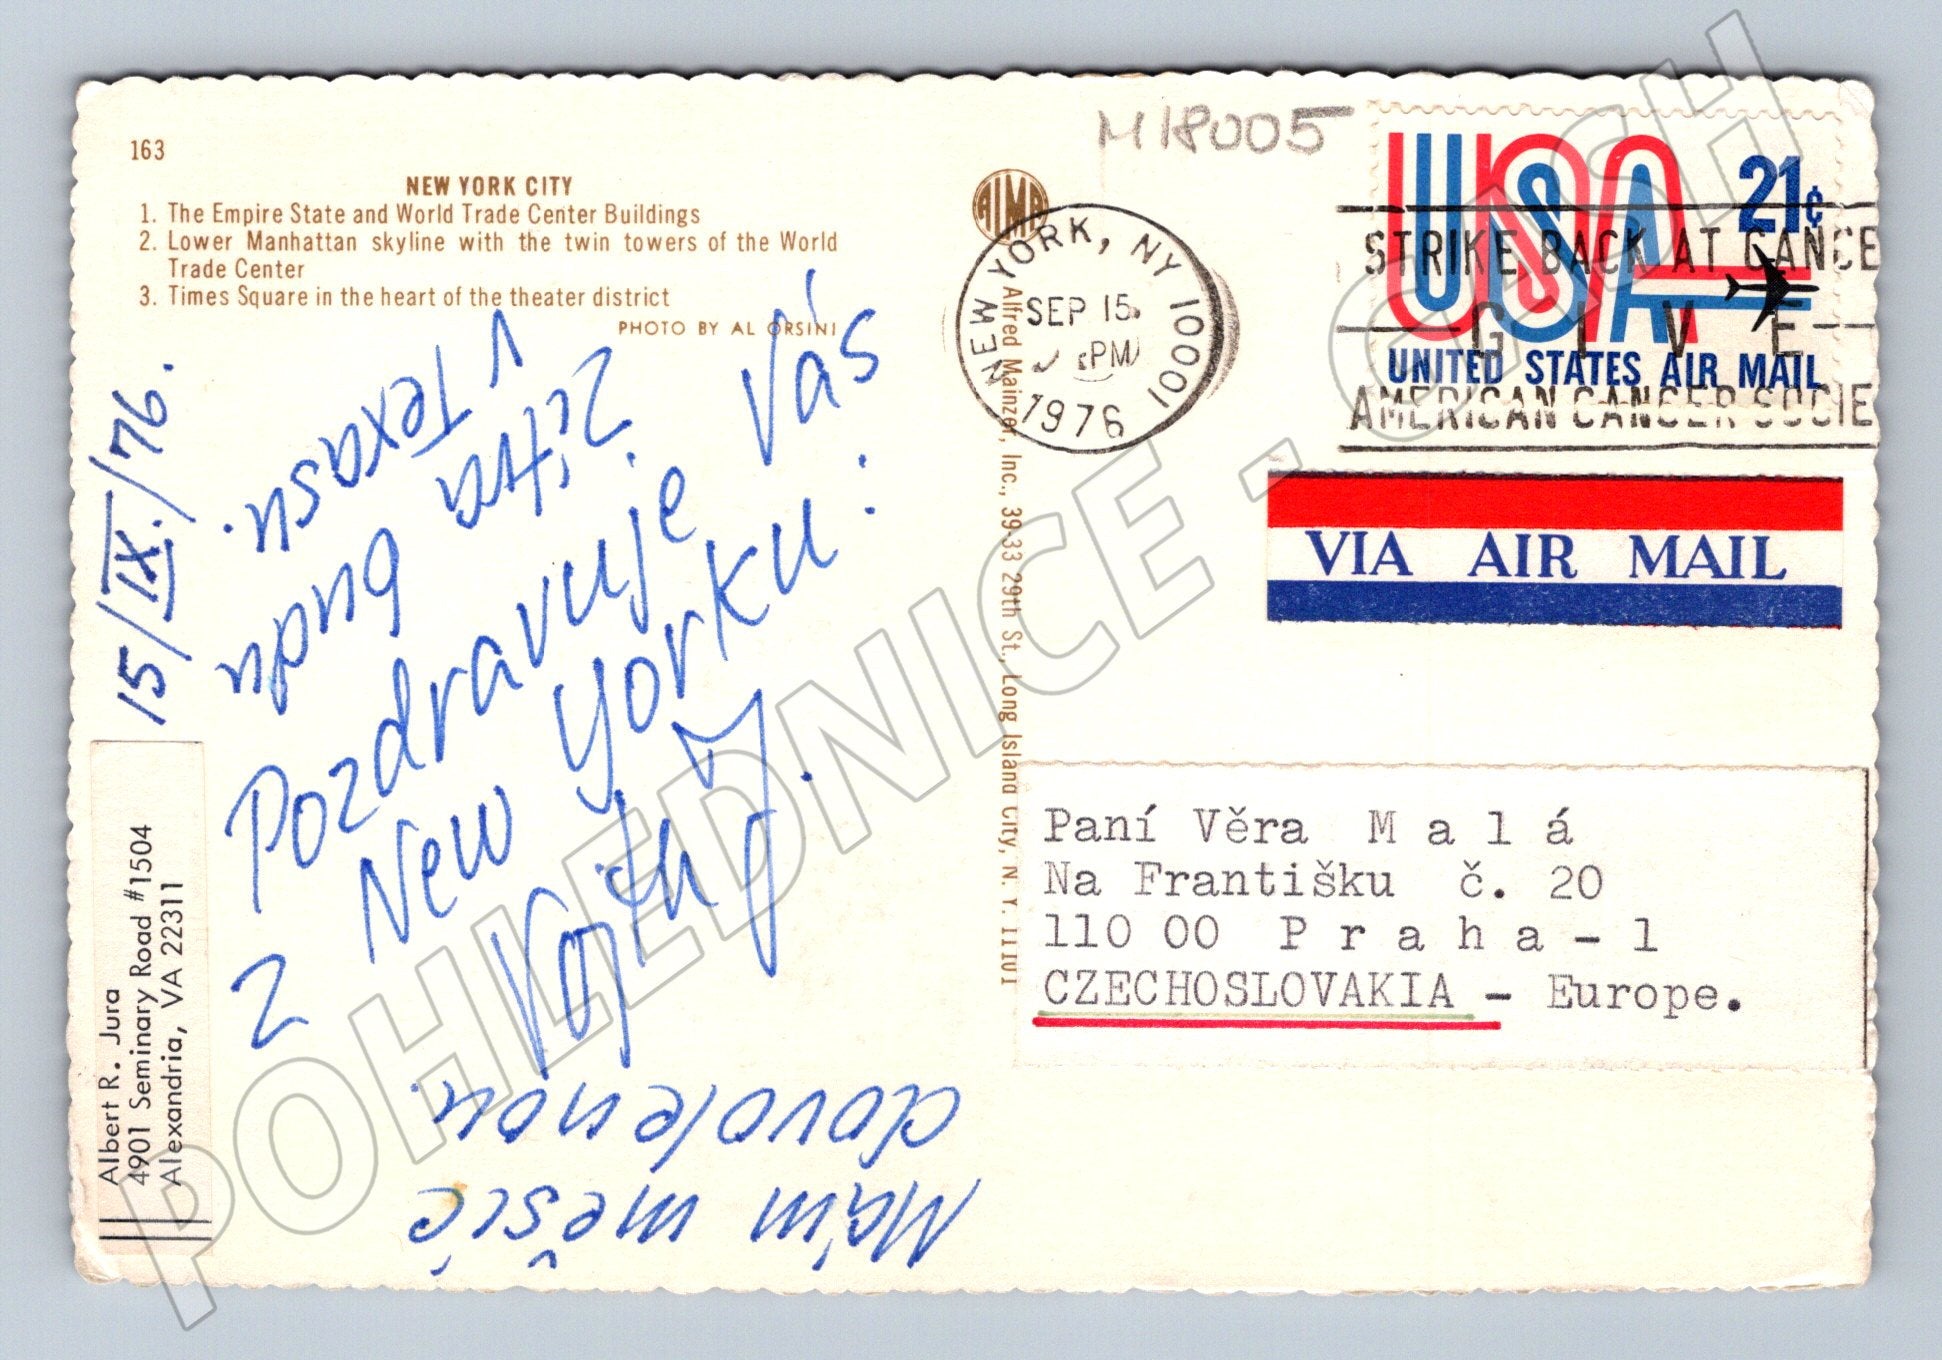 163
NEW YORK CITY
1. The Empire State and World Trade Center Buildings
2. Lower Manhattan skyline with the twin towers of the World
Trade Center
3. Times Square in the heart of the theater district
PHOTO BY AL ORSINI
15/IX./76.
Pozdravuje Vás
z New Yorku:
Mám měsíc
dovolenou.
Zítra budu
v Texasu.
Albert R. Jura
4901 Seminary Road #1504
Alexandria, VA 22311
Alfred Mainzer, Inc., 39-33 29th St., Long Island City, N. Y. 11101
M18005
NEW YORK, NY 10001
SEP 15
PM
1976
USA 21¢
UNITED STATES AIR MAIL
STRIKE BACK AT CANCE
GIVE
AMERICAN CANCER SOCIE
VIA AIR MAIL
Paní Věra Malá
Na Františku č. 20
110 00 Praha-1
CZECHOSLOVAKIA - Europe.
POHLEDNICE - CASH